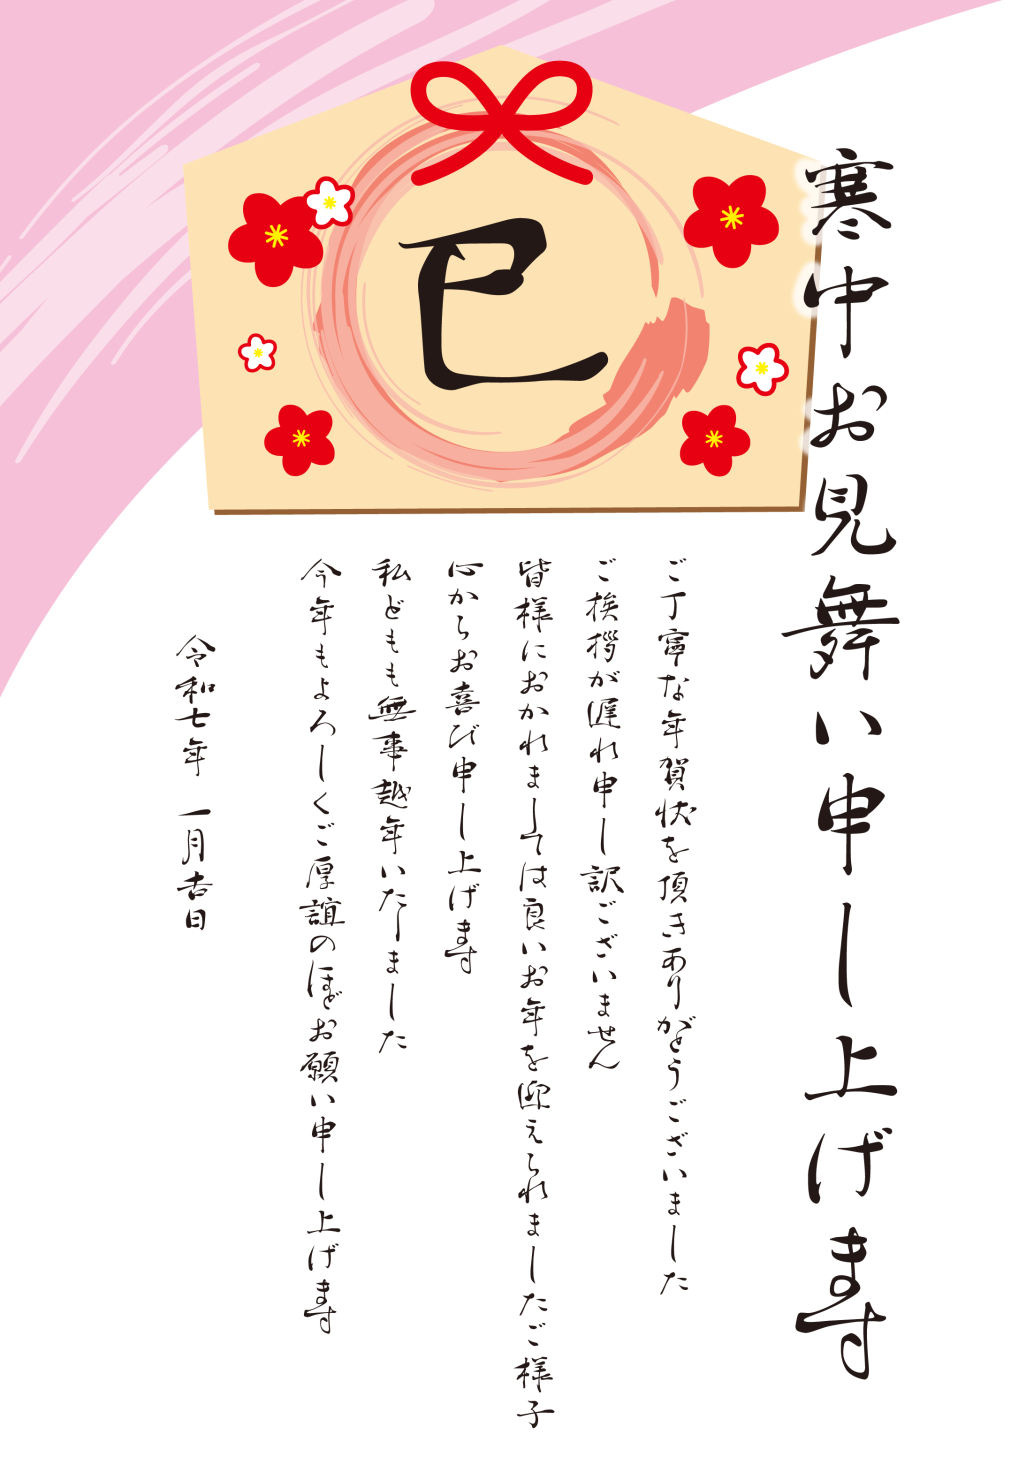 寒中お見舞い申し上げます
巳
ご丁寧な年賀状を頂きありがとうございました
ご挨拶が遅れ申し訳ございません
皆様におかれましては良いお年を迎えられましたご様子
心からお喜び申し上げます
私どもも無事越年いたしました
今年もよろしくご厚誼のほどお願い申し上げます
令和七年 一月吉日